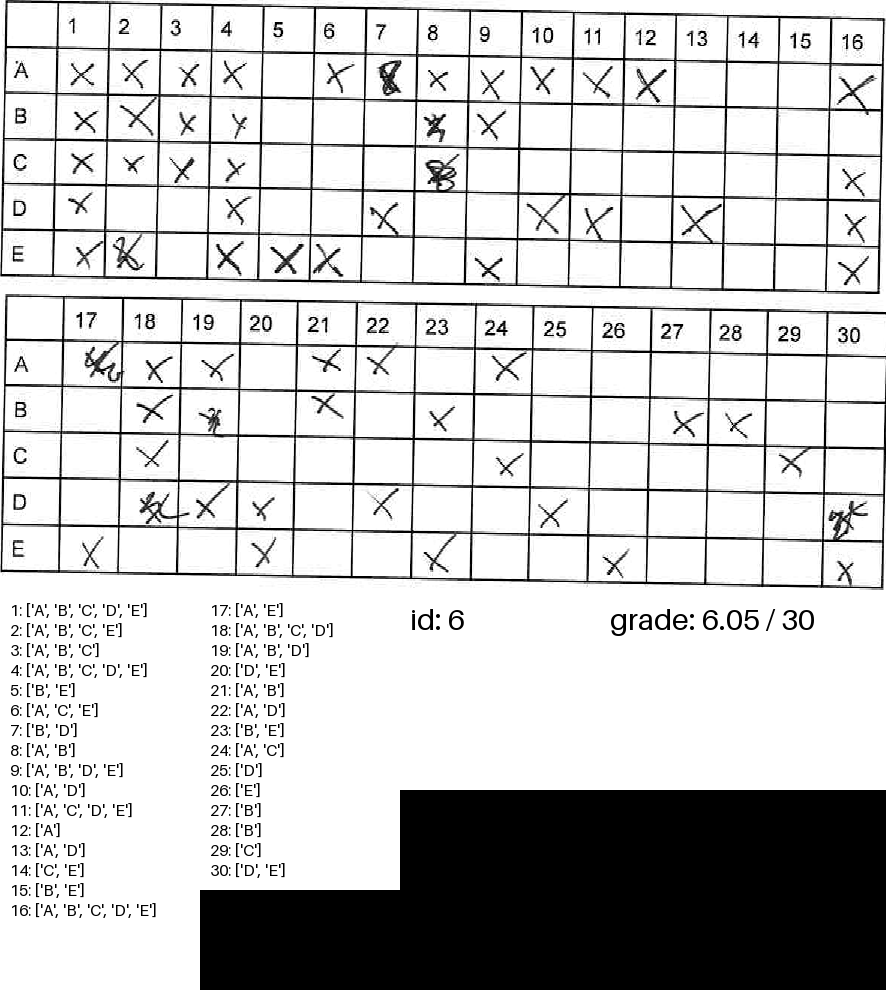 1 2 3 4 5 6 7 8 9 10 11 12 13 14 15 16
A X X X X X X X X X X X X
B X X X X X
C X X X X X
D X X X X X X X
E X X X X X X
17 18 19 20 21 22 23 24 25 26 27 28 29 30
A X X X X X
B X X X X X
C X X X
D X X X X
E X X X X X
1: ['A', 'B', 'C', 'D', 'E']
2: ['A', 'B', 'C', 'E']
3: ['A', 'B', 'C']
4: ['A', 'B', 'C', 'D', 'E']
5: ['B', 'E']
6: ['A', 'C', 'E']
7: ['B', 'D']
8: ['A', 'B']
9: ['A', 'B', 'D', 'E']
10: ['A', 'D']
11: ['A', 'C', 'D', 'E']
12: ['A']
13: ['A', 'D']
14: ['C', 'E']
15: ['B', 'E']
16: ['A', 'B', 'C', 'D', 'E']
17: ['A', 'E']
18: ['A', 'B', 'C', 'D']
19: ['A', 'B', 'D']
20: ['D', 'E']
21: ['A', 'B']
22: ['A', 'D']
23: ['B', 'E']
24: ['A', 'C']
25: ['D']
26: ['E']
27: ['B']
28: ['B']
29: ['C']
30: ['D', 'E']
id: 6
grade: 6.05 / 30